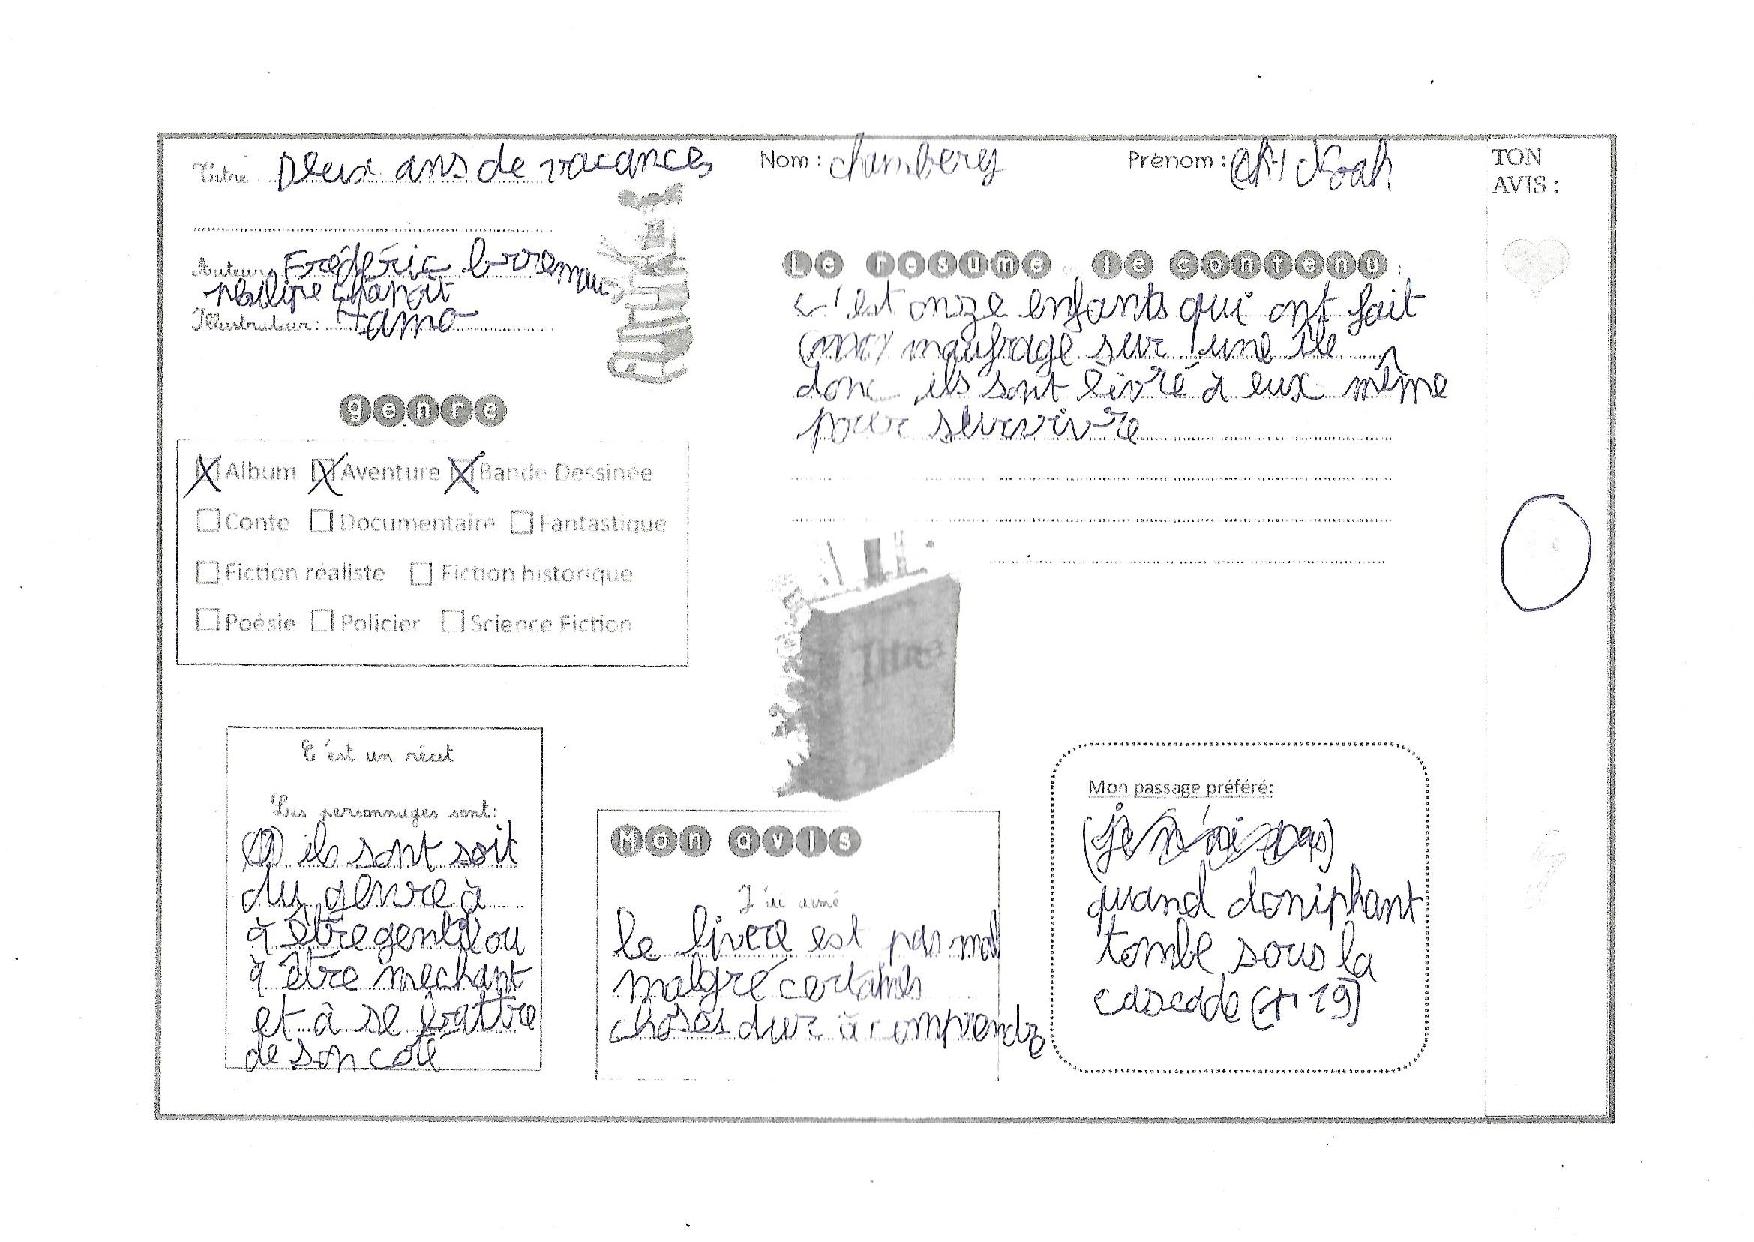 Titre Deux ans de vacances
Nom : chamberg
Prénom : Noah
TON
AVIS :
Auteur Frédéric brremau
philipe chanoit
Illustrateur: Hamo
genre
Album Aventure Bande Dessinée
Conte Documentaire Fantastique
Fiction réaliste Fiction historique
Poésie Policier Science Fiction
Le resume, le contenu :
c'est onze enfants qui ont fait
naufrage sur une île
donc ils sont livré à eux même
pour survivre
Titre
C'est un récit
Les personnages sont:
ils sont soit
du genre à
à être gentil ou
à être mechant
et à se battre
de son coté
Mon avis
J'ai aimé
le livre est pas mal
malgré certaines
choses dur à comprendre
Mon passage préféré:
(je n'ai pas)
quand doniphant
tombe sous la
cascade ( 19)